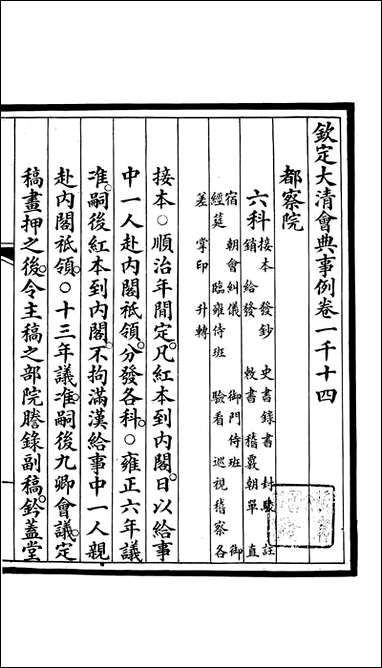 欽定大清會典事例卷一千十四
都察院
六科
接本 發鈔 史書錄書 封駮 註
銷 給發 敕書 稽覈朝單 直
宿 朝會糾儀 御門侍班 御
經筵 臨雍侍班 驗看 巡視稽察各
差 掌印 升轉
接本○順治年間定。凡紅本到內閣。日以給事
中一人赴內閣祇領。分發各科。○雍正六年議
准。嗣後紅本到內閣。不拘滿漢給事中一人親
赴內閣祇領。○十三年議准。嗣後九卿會議。定
稿畫押之後。令主稿之部院謄錄副稿。鈐蓋堂